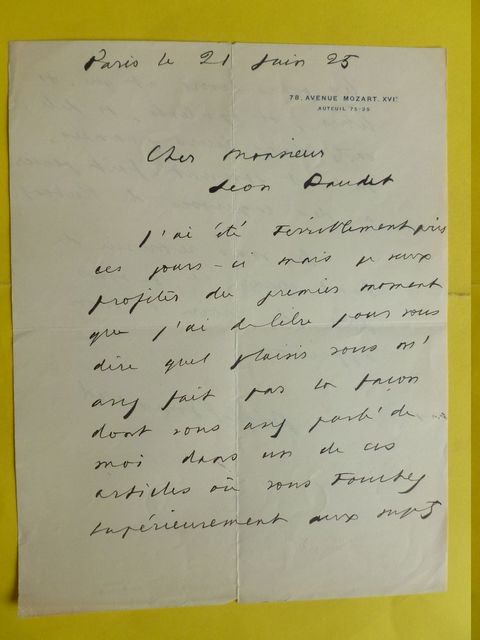 Paris le 21 Juin 25
78, AVENUE MOZART. XVIᵉ
AUTEUIL 75-25
Cher Monsieur
Leon Daudet
J'ai été Terriblement pris
ces jours-ci mais je veux
profiter du premier moment
que j'ai de libre pour vous
dire quel plaisir vous m'
avez fait par la façon
dont vous avez parlé de
moi dans un de ces
articles où vous Touchez
supérieurement aux sujets